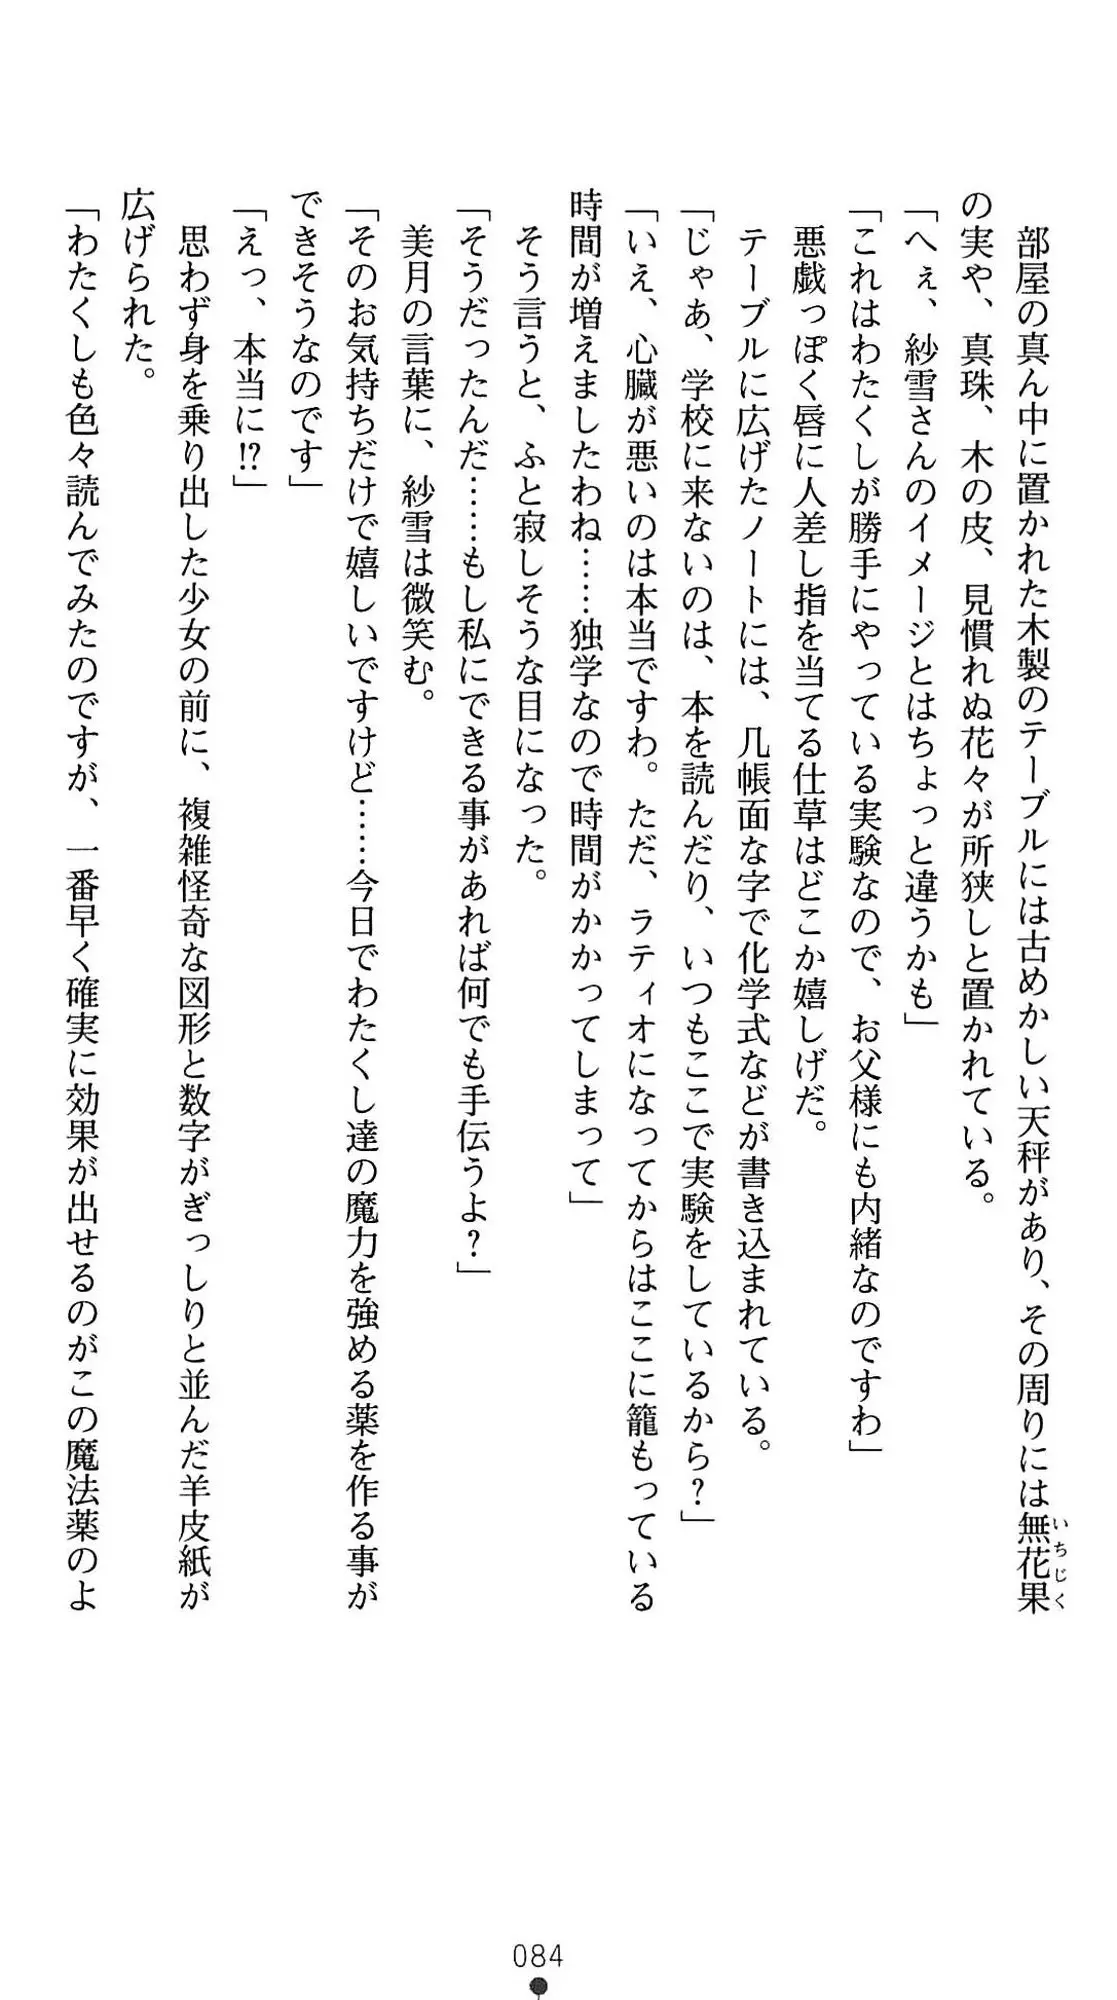 部屋の真ん中に置かれた木製のテーブルには古めかしい天秤があり、その周りには無花果
いちじく
の実や、真珠、木の皮、見慣れぬ花々が所狭しと置かれている。
「へぇ、紗雪さんのイメージとはちょっと違うかも」
「これはわたくしが勝手にやっている実験なので、お父様にも内緒なのですわ」
悪戯っぽく唇に人差し指を当てる仕草はどこか嬉しげだ。
テーブルに広げたノートには、几帳面な字で化学式などが書き込まれている。
「じゃあ、学校に来ないのは、本を読んだり、いつもここで実験をしているから？」
「いえ、心臓が悪いのは本当ですわ。ただ、ラティオになってからはここに籠もっている
時間が増えましたわね……独学なので時間がかかってしまって」
そう言うと、ふと寂しそうな目になった。
「そうだったんだ……もし私にできる事があれば何でも手伝うよ？」
美月の言葉に、紗雪は微笑む。
「そのお気持ちだけで嬉しいですけど……今日でわたくし達の魔力を強める薬を作る事が
できそうなのです」
「えっ、本当に!?」
思わず身を乗り出した少女の前に、複雑怪奇な図形と数字がぎっしりと並んだ羊皮紙が
広げられた。
「わたくしも色々読んでみたのですが、一番早く確実に効果が出せるのがこの魔法薬のよ
084